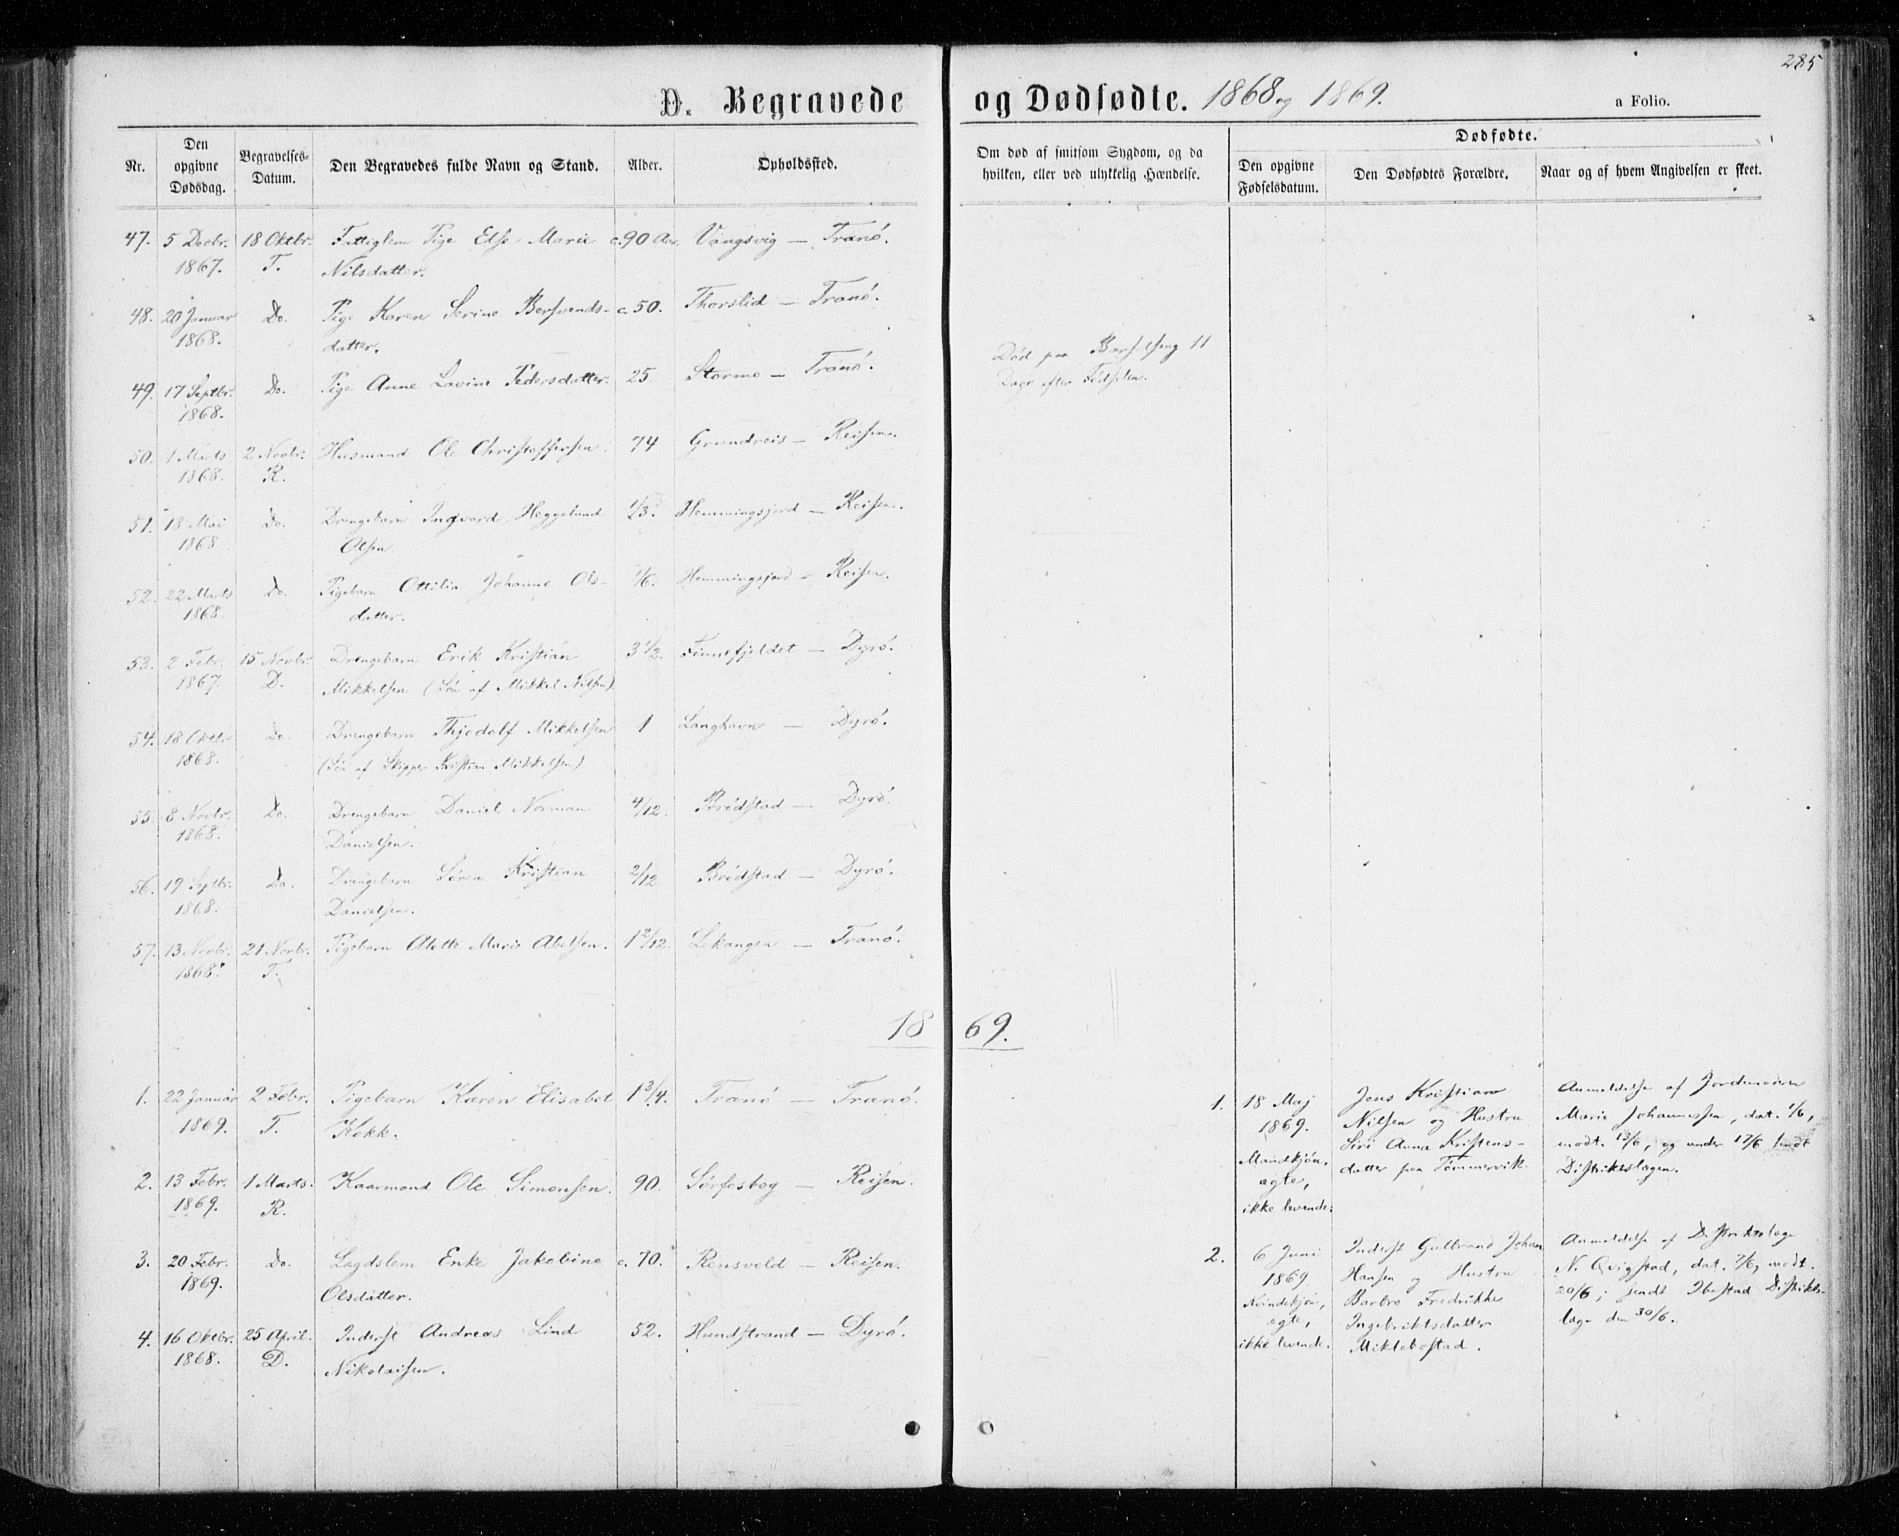 285
D. Begravede og Dødfødte. 1868 og 1869.
a Folio.
Nr.
Den opgivne Dødsdag.
Begravelses-Datum.
Den Begravedes fulde Navn og Stand.
Alder.
Opholdssted.
Om død af smitsom Sygdom, og da hvilken, eller ved ulykkelig Hændelse.
Dødfødte.
Den opgivne Fødselsdatum.
Den Dødfødtes Forældre.
Naar og af hvem Angivelsen er skeet.
47. 5 Decbr. 18 Oktbr. Fattiglem Pige Else Marie c. 90 Aar. Vangsvig — Tranö.
1867. T. Nilsdatter.
48. 20 Januar Do. Pige Karen Serine Bersvends- c. 50. Thorslid — Tranö.
1868. datter.
49. 17 Septbr. Do. Pige Anne Lavine Pedersdatter. 25. Stormo — Tranö. Död paa Barselseng 11
1868. Dage efter Födselen.
50. 1 Marts 2 Novbr. Husmand Ole Christoffersen. 74 Grundreis — Reisen.
1868. R.
51. 13 Mai Do. Drengebarn Ingvard Heggelund 1/3. Hemmingsjord — Reisen.
1868 Olsen.
52. 22 Marts Do. Pigebarn Ottilia Johanne Ols- 1/6. Hemmingsjord — Reisen.
1868 datter.
53. 2 Febr. 15 Novbr. Drengebarn Erik Kristian 3 1/2. Finnefjeldet — Dyrö.
1867. D. Mikkelsen (Sön af Mikkel Nilsen).
54. 18 Oktbr. Do. Drengebarn Thjodolf Mikkelsen 1 Langhavn — Dyrö.
1868. (Sön af Skipper Kristian Mikkelsen)
55. 8 Novbr. Do. Drengebarn Daniel Norman 4/12. Brödstad — Dyrö.
1868. Danielsen.
56. 19 Septbr. Do. Drengebarn Sören Kristian 2/12 Brödstad — Dyrö.
1868. Danielsen.
57. 13 Novbr. 21 Novbr. Pigebarn Alette Marie Abelsen. 1 2/12. Lekangen — Tranö.
1868. T.
1869.
1. 22 Januar 2 Febr. Pigebarn Karen Elisabet 1 3/4. Tranö — Tranö.
1869. T. Kokk.
2. 13 Febr. 1 Marts. Kaarmand Ole Simonsen. 90. Sörfosbog — Reisen.
1869. R.
3. 20 Febr. Do. Lægdslem Enke Jakobine c. 70. Rensvold — Reisen.
1869. Olsdatter.
4. 16 Oktbr. 25 April. Inderst Andreas Lind 52. Hundstrand — Dyrö.
1868. D. Nikolaisen.
1. 18 Maj Jens Kristian Anmeldelse af Jordemoderen
1869. Nilsen og Hustru Marie Johannessen, dat. 1/6,
Mandkjön, Siri Anna Kristens- modt. 13/6, og under 17/6 sendt
ægte, datter paa Tömmervik. Distriktslægen.
ikke levende.
2. 6 Juni Inderst Gulbrand Johan Anmeldelse af Distriktslæge
1869 Hansen og Hustru N. Qvigstad, dat. 7/6, modt.
Kvindekjön, Barbro Fredrikke 20/6; sendt Ibestad Distrikts-
ægte, Ingebriktsdatter læge den 30/6.
ikke levende. Miklebostad.